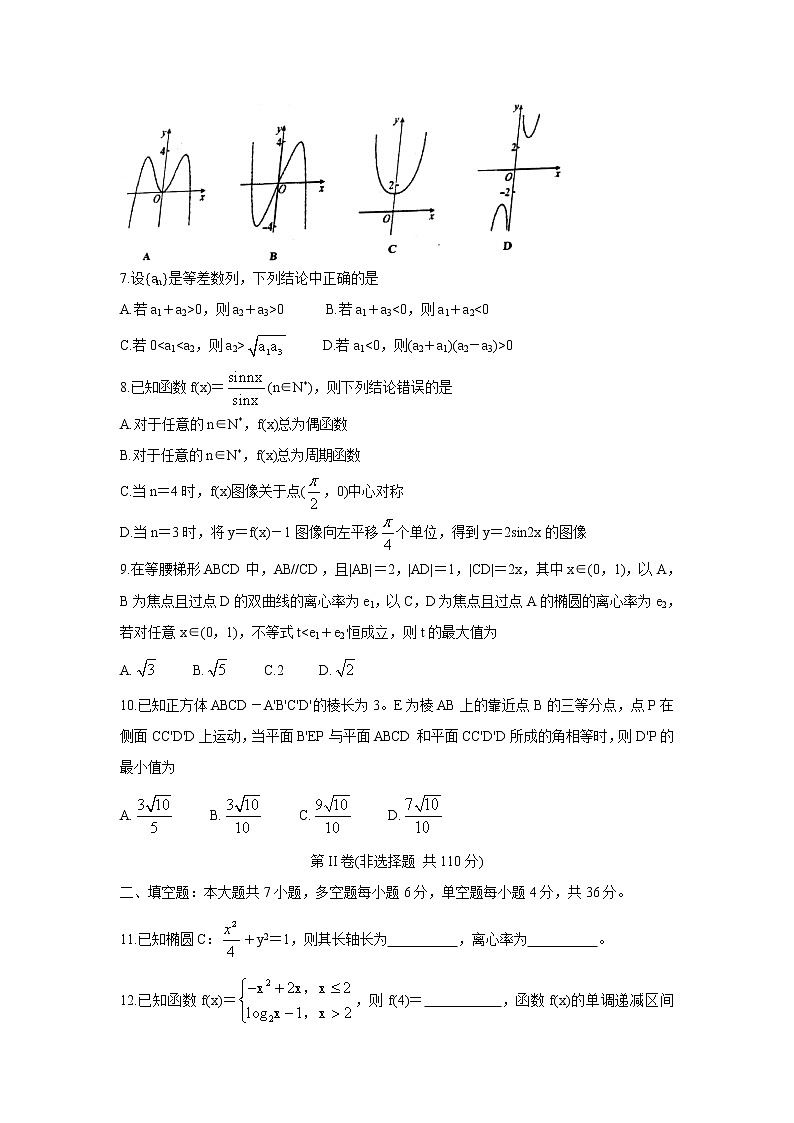 y 4 O x A
y 4 O x −4 B
y 2 O x C
y 2 O x −2 D
7.设{aₙ}是等差数列，下列结论中正确的是
A.若a₁＋a₂>0，则a₂＋a₃>0 B.若a₁＋a₃<0，则a₁＋a₂<0
C.若0<a₁<a₂，则a₂>√(a₁a₃) D.若a₁<0，则(a₂＋a₁)(a₂－a₃)>0
8.已知函数f(x)＝sinnx/sinx(n∈N*)，则下列结论错误的是
A.对于任意的n∈N*，f(x)总为偶函数
B.对于任意的n∈N*，f(x)总为周期函数
C.当n＝4时，f(x)图像关于点(π/2，0)中心对称
D.当n＝3时，将y＝f(x)－1图像向左平移π/4个单位，得到y＝2sin2x的图像
9.在等腰梯形ABCD中，AB//CD，且|AB|＝2，|AD|＝1，|CD|＝2x，其中x∈(0，1)，以A，
B为焦点且过点D的双曲线的离心率为e₁，以C，D为焦点且过点A的椭圆的离心率为e₂，
若对任意x∈(0，1)，不等式t<e₁＋e₂恒成立，则t的最大值为
A.√3 B.√5 C.2 D.√2
10.已知正方体ABCD－A'B'C'D'的棱长为3。E为棱AB上的靠近点B的三等分点，点P在
侧面CC'D'D上运动，当平面B'EP与平面ABCD和平面CC'D'D所成的角相等时，则D'P的
最小值为
A.3√10/5 B.3√10/10 C.9√10/10 D.7√10/10
第II卷(非选择题 共110分)
二、填空题：本大题共7小题，多空题每小题6分，单空题每小题4分，共36分。
11.已知椭圆C：x²/4＋y²＝1，则其长轴长为__________，离心率为__________。
12.已知函数f(x)＝{−x²＋2x，x≤2 log₂x−1，x＞2，则f(4)＝__________，函数f(x)的单调递减区间